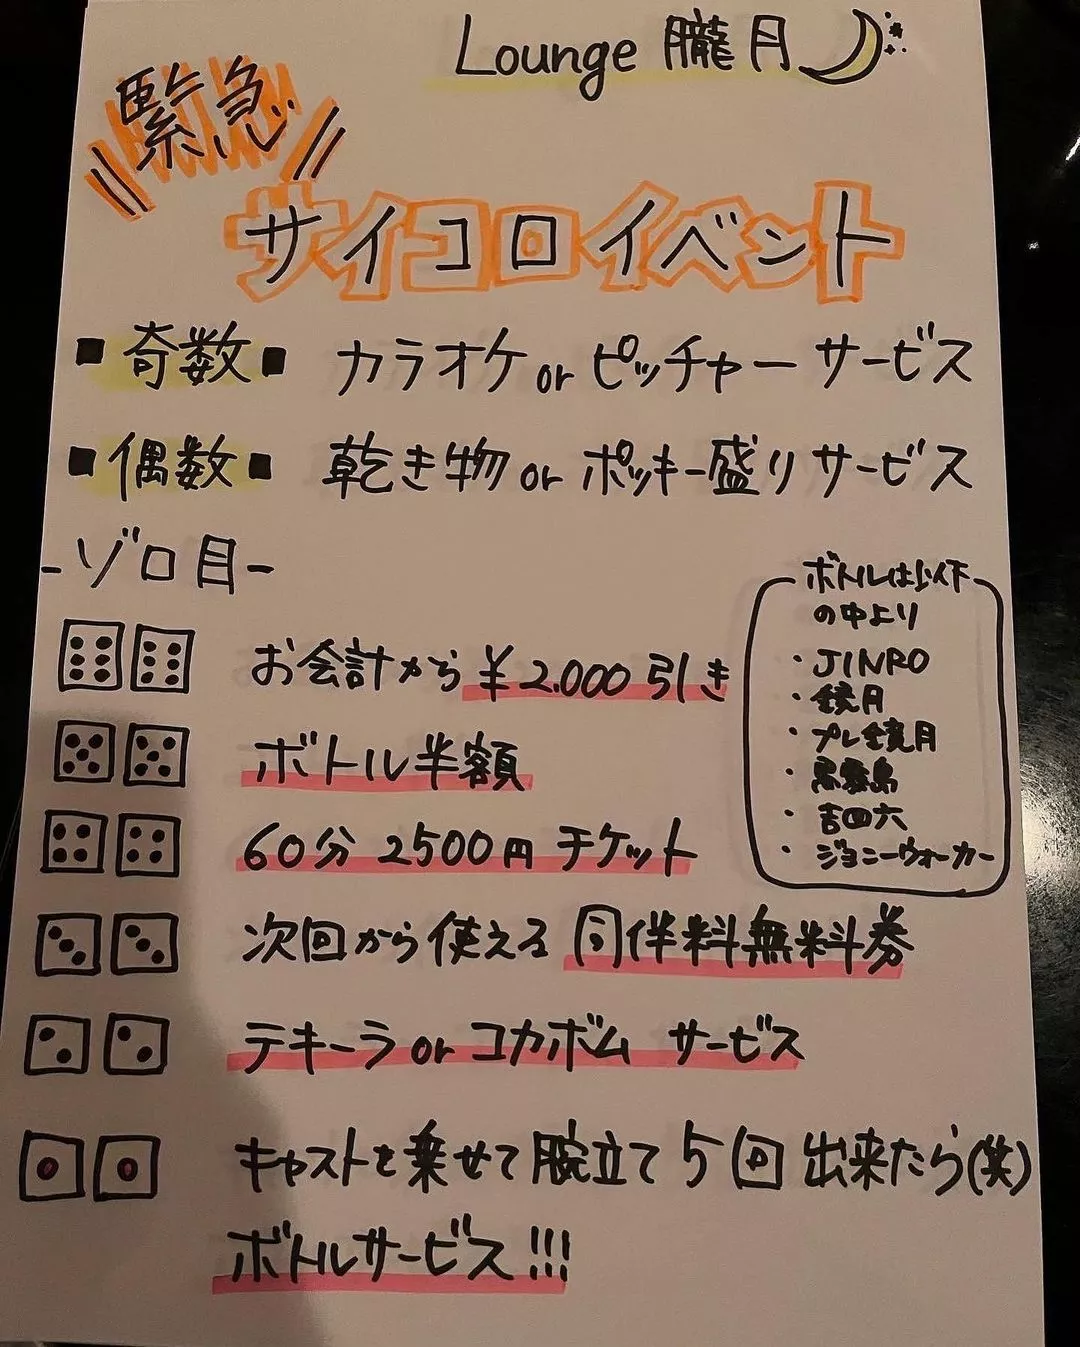 Lounge 朧月
緊急
サイコロイベント
■奇数■ カラオケ or ピッチャー サービス
■偶数■ 乾き物 or ポッキー盛りサービス
-ゾロ目-
お会計から ¥2.000 引き
ボトル半額
60分 2500円 チケット
次回から使える 同伴料無料券
テキーラ or コカボム サービス
キャストを乗せて腕立て 5回 出来たら(笑)
ボトルサービス!!!
ボトルは以下
の中より
・JINRO
・鏡月
・プレ鏡月
・黒霧島
・吉四六
・ジョニーウォーカー